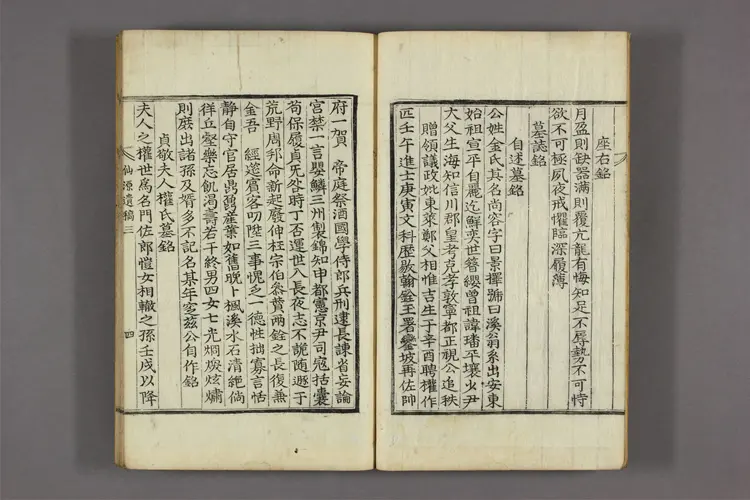 座右銘
月盈則缺器滿則覆亢龍有悔知足不辱勢不可恃
欲不可極夙夜戒懼臨深履薄
墓誌銘
自述墓銘
公姓金氏其名尚容字曰景擇號曰溪翁系出安東
始祖宣平自麗迄鮮奕世簪纓曾祖諱璠平壤少尹
大父生海知信川郡皇考克孝敦寧都正視公追秩
贈領議政妣東萊鄭父相惟吉生于辛酉聘權作
匹壬午進士庚寅文科歷敭翰銓玉署鑾坡再佐帥
府一賀 帝庭祭酒國學侍郎兵刑建長諫省妄論
宮禁一言嬰鱗三州製錦知申都憲京尹司寇括囊
苟保履貞旡咎時丁否運世入長夜志不詭隨遯于
荒野周邦命新起廢伸枉宗伯叅贊兩銓之長復兼
金吾 經筵賓客叨陞三事愧乏一德性拙寡言恬
静自守官居鼎鼐産業如舊晚卜楓溪水石清絶倘
徉丘壑樂忘飢渴壽若干終男四女七光烱煥炫
則庶出諸孫及壻多不記名某年穸兹公自作銘
貞敬夫人權氏墓銘
夫人之權世爲名門佐郎愷女相轍之孫壬戌以降
仙源遺稿三 四